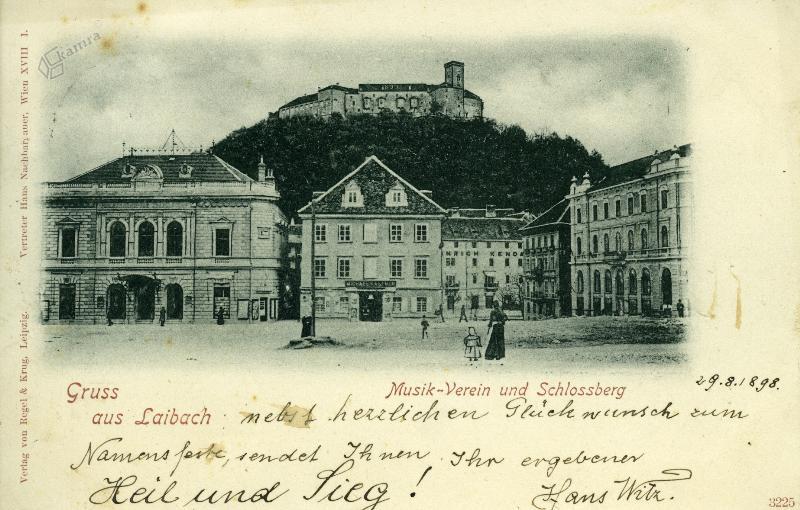 kamra
Verlag von Regel & Krug, Leipzig. Vertreter Hans Nachbargauer, Wien XVIII 1.
NRICH KENDA
Gruss
aus Laibach
Musik-Verein und Schlossberg
29.8.1898.
nebst herzlichen Glückwunsch zum
Namensfeste, sendet Ihnen Ihr ergebener
Heil und Sieg! Hans Witz.
3225